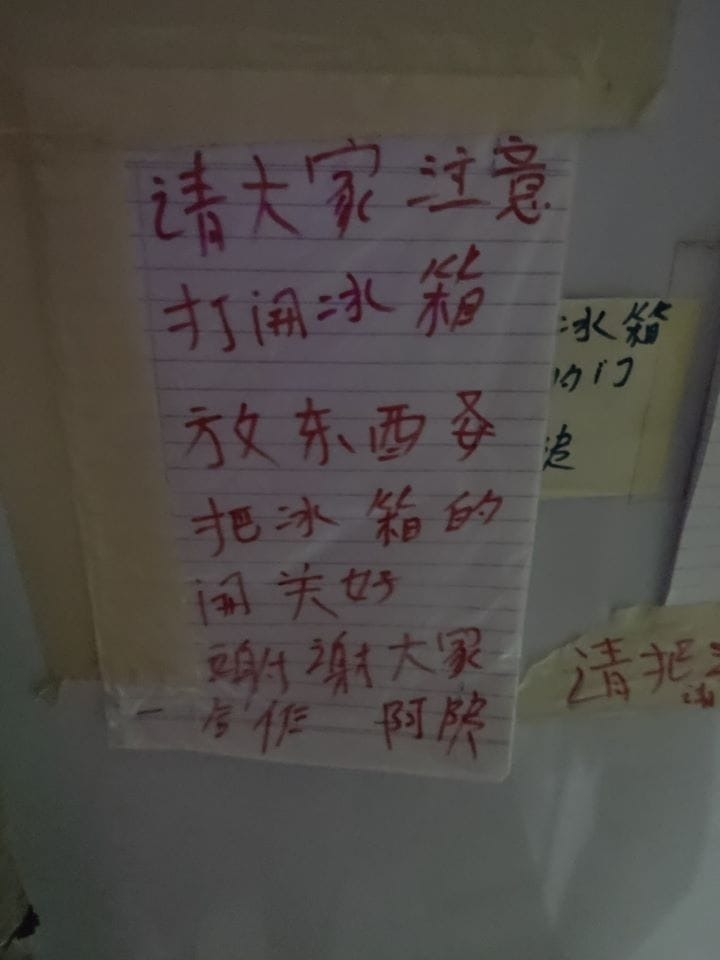 请大家注意
打開冰箱
放东西要
把冰箱的
開关好
謝谢大家
合作 阿
冰箱
的门
请把